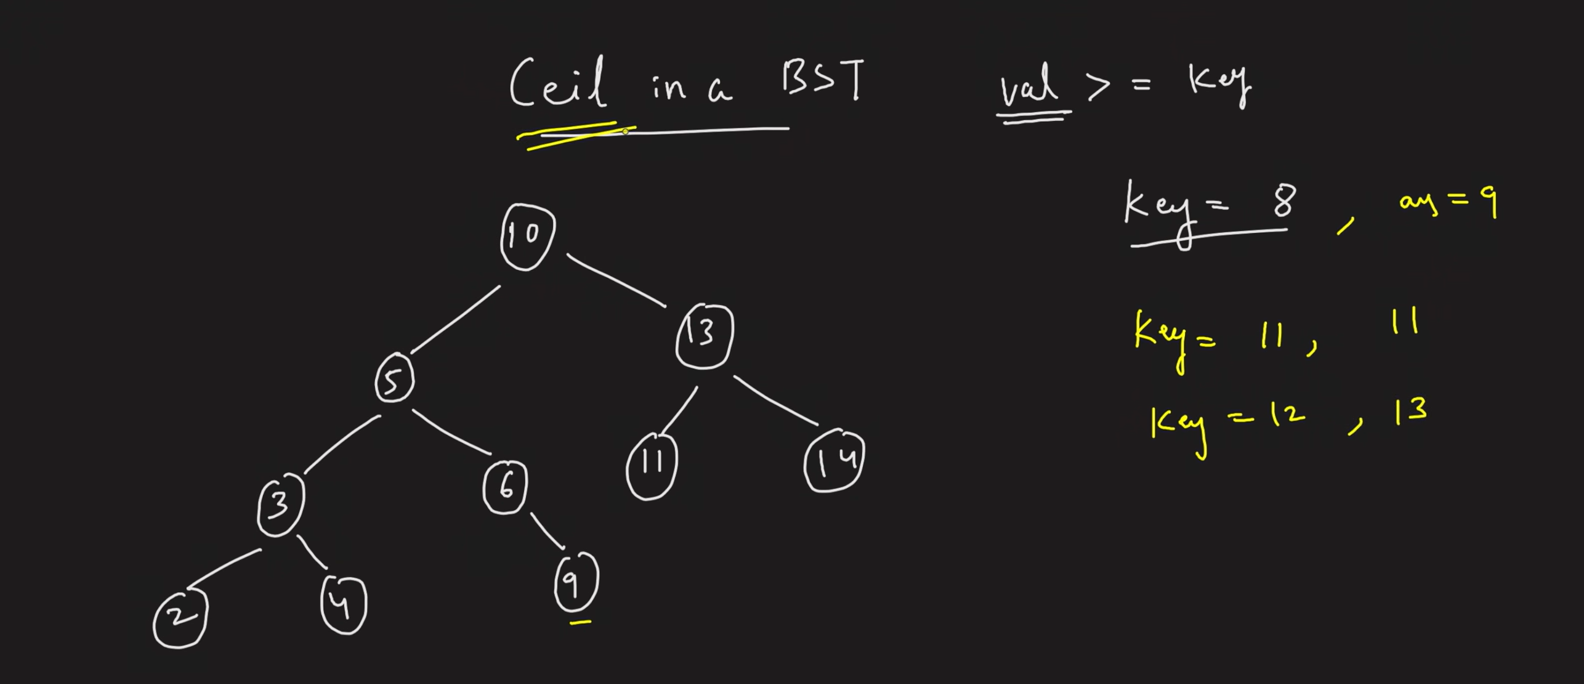 Ceil in a BST
val > = Key
Key = 8 , ans = 9
Key = 11 , 11
Key = 12 , 13
10
13
5
11
14
3
6
9
2
4